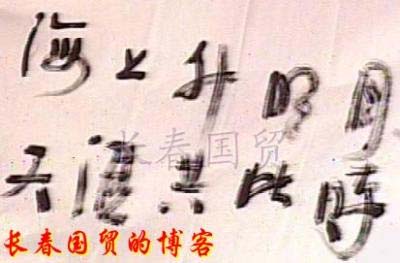 海上升明月
天涯共此時
长春国贸
长春国贸的博客